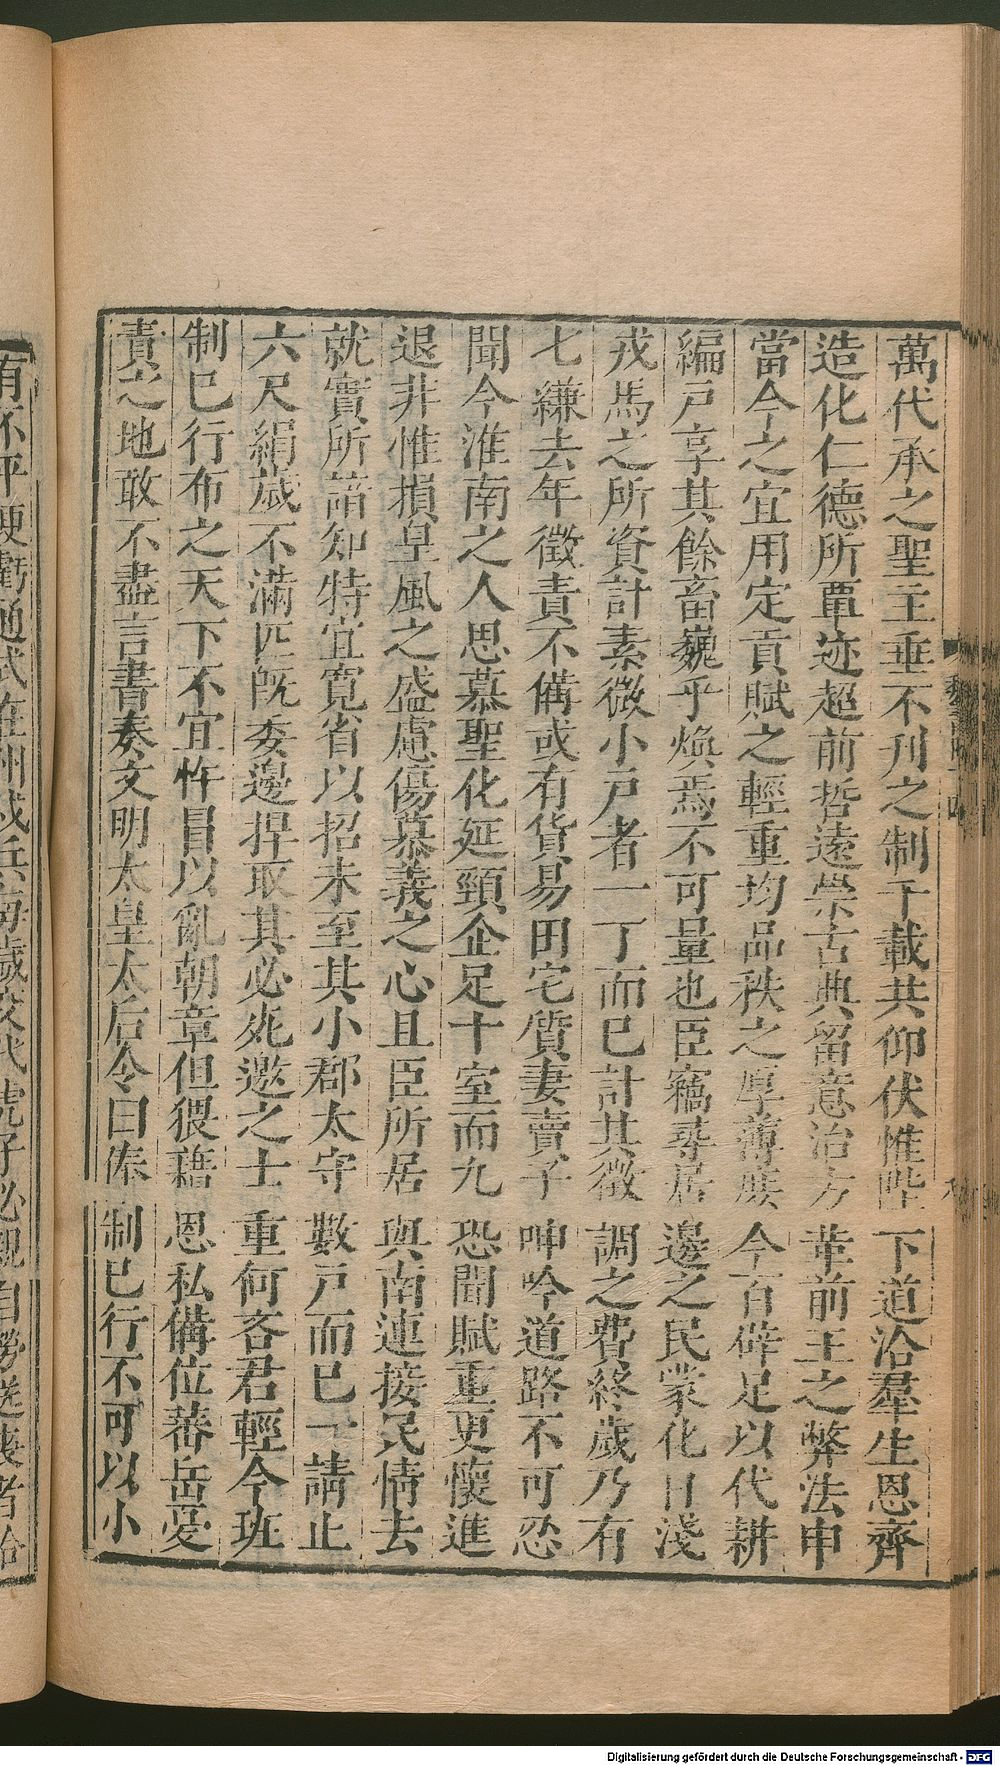 萬代承之聖主垂不刊之制千載共仰伏惟陛下道洽羣生恩齊
造化仁德所覃迹超前哲遠崇古典留意治方革前王之弊法申
當今之宜用定貢賦之輕重均品秩之厚薄庶令百辟足以代耕
編戸享其餘畜巍乎煥焉不可量也臣竊尋居邊之民蒙化日淺
戎馬之所資計素微小戸者一丁而已計其徵調之費終歲乃有
七縑去年徵責不備或有貨易田宅質妻賣子呻吟道路不可忍
聞今淮南之人思慕聖化延頸企足十室而九恐聞賦重更懷進
退非惟損皇風之盛慮傷慕義之心且臣所居與南連接民情去
就實所諳知特宜寛省以招未至其小郡太守數戸而已一請止
六尺絹歲不滿匹既委邊捍取其必死邀之士重何吝君輕今班
制已行布之天下不宜忤冒以亂朝章但猥藉恩私備位蕃岳憂
責之地敢不盡言書奏文明太皇太后令曰俸制已行不可以小
有不平便虧通式在州戍兵每歲交代虎子必親自勞送喪者給